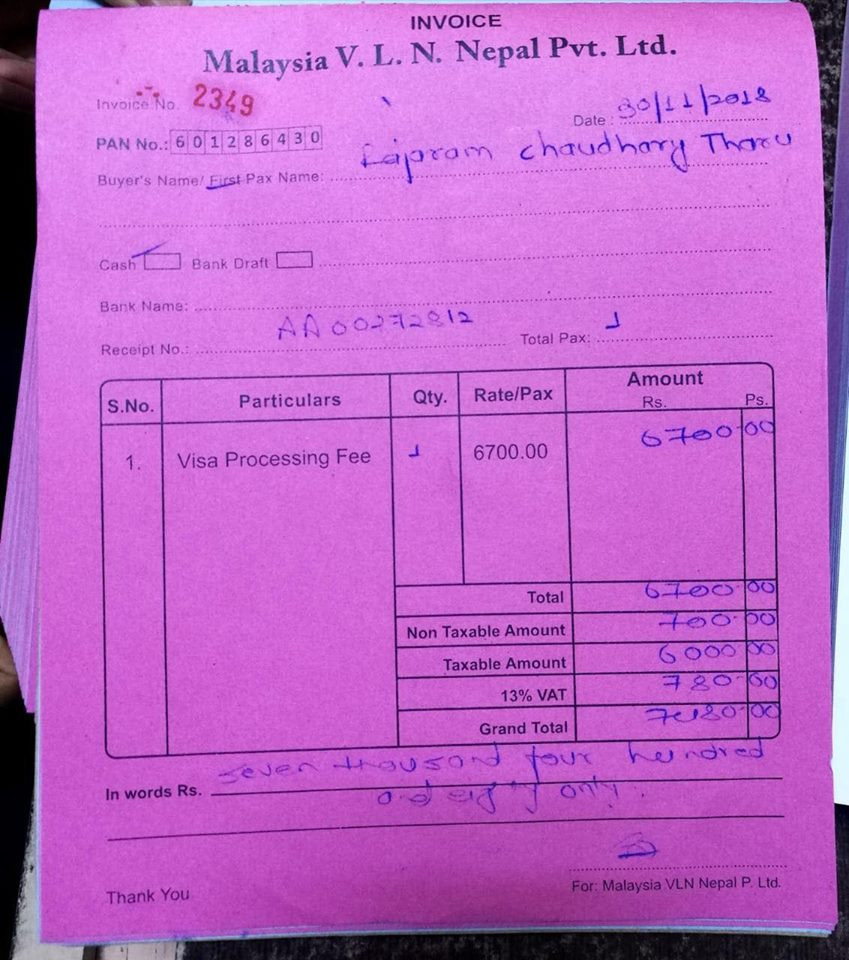 INVOICE
Malaysia V. L. N. Nepal Pvt. Ltd.
Invoice No. 2349
Date : 30/11/2018
PAN No.: 601286430
Buyer's Name/ First Pax Name: chaudhary Tharu
Cash Bank Draft
Bank Name:
Receipt No.: AA00272812 Total Pax: 1
S.No. Particulars Qty. Rate/Pax Amount
Rs. Ps.
1. Visa Processing Fee 1 6700.00 6700.00
Total 6700.00
Non Taxable Amount 700.00
Taxable Amount 6000.00
13% VAT 780.00
Grand Total 7480.00
seven thousand four hundred
In words Rs. and eighty only.
Thank You
For: Malaysia VLN Nepal P. Ltd.